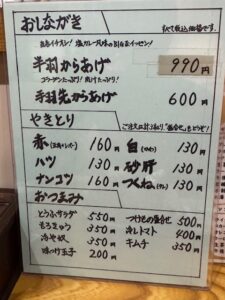 おしながき
すべて税込価格です。
当店イチオシ! 塩カレー風味の
半羽からあげ 990円
コラーゲンたっぷり! 肉汁たっぷり!
手羽先からあげ 600円
やきとり
ご注文は計3本より、"盛合せ"もどうぞ!
赤(豚ハツレバー) 160円 白 130円
ハツ 130円 砂肝 130円
ナンコツ 160円 つくね(タレ) 130円
おつまみ
とうふサラダ 550円 つけものの盛合せ 500円
もろきゅう 350円 冷しトマト 400円
冷や奴 350円 キムチ 350円
味つけ玉子 200円